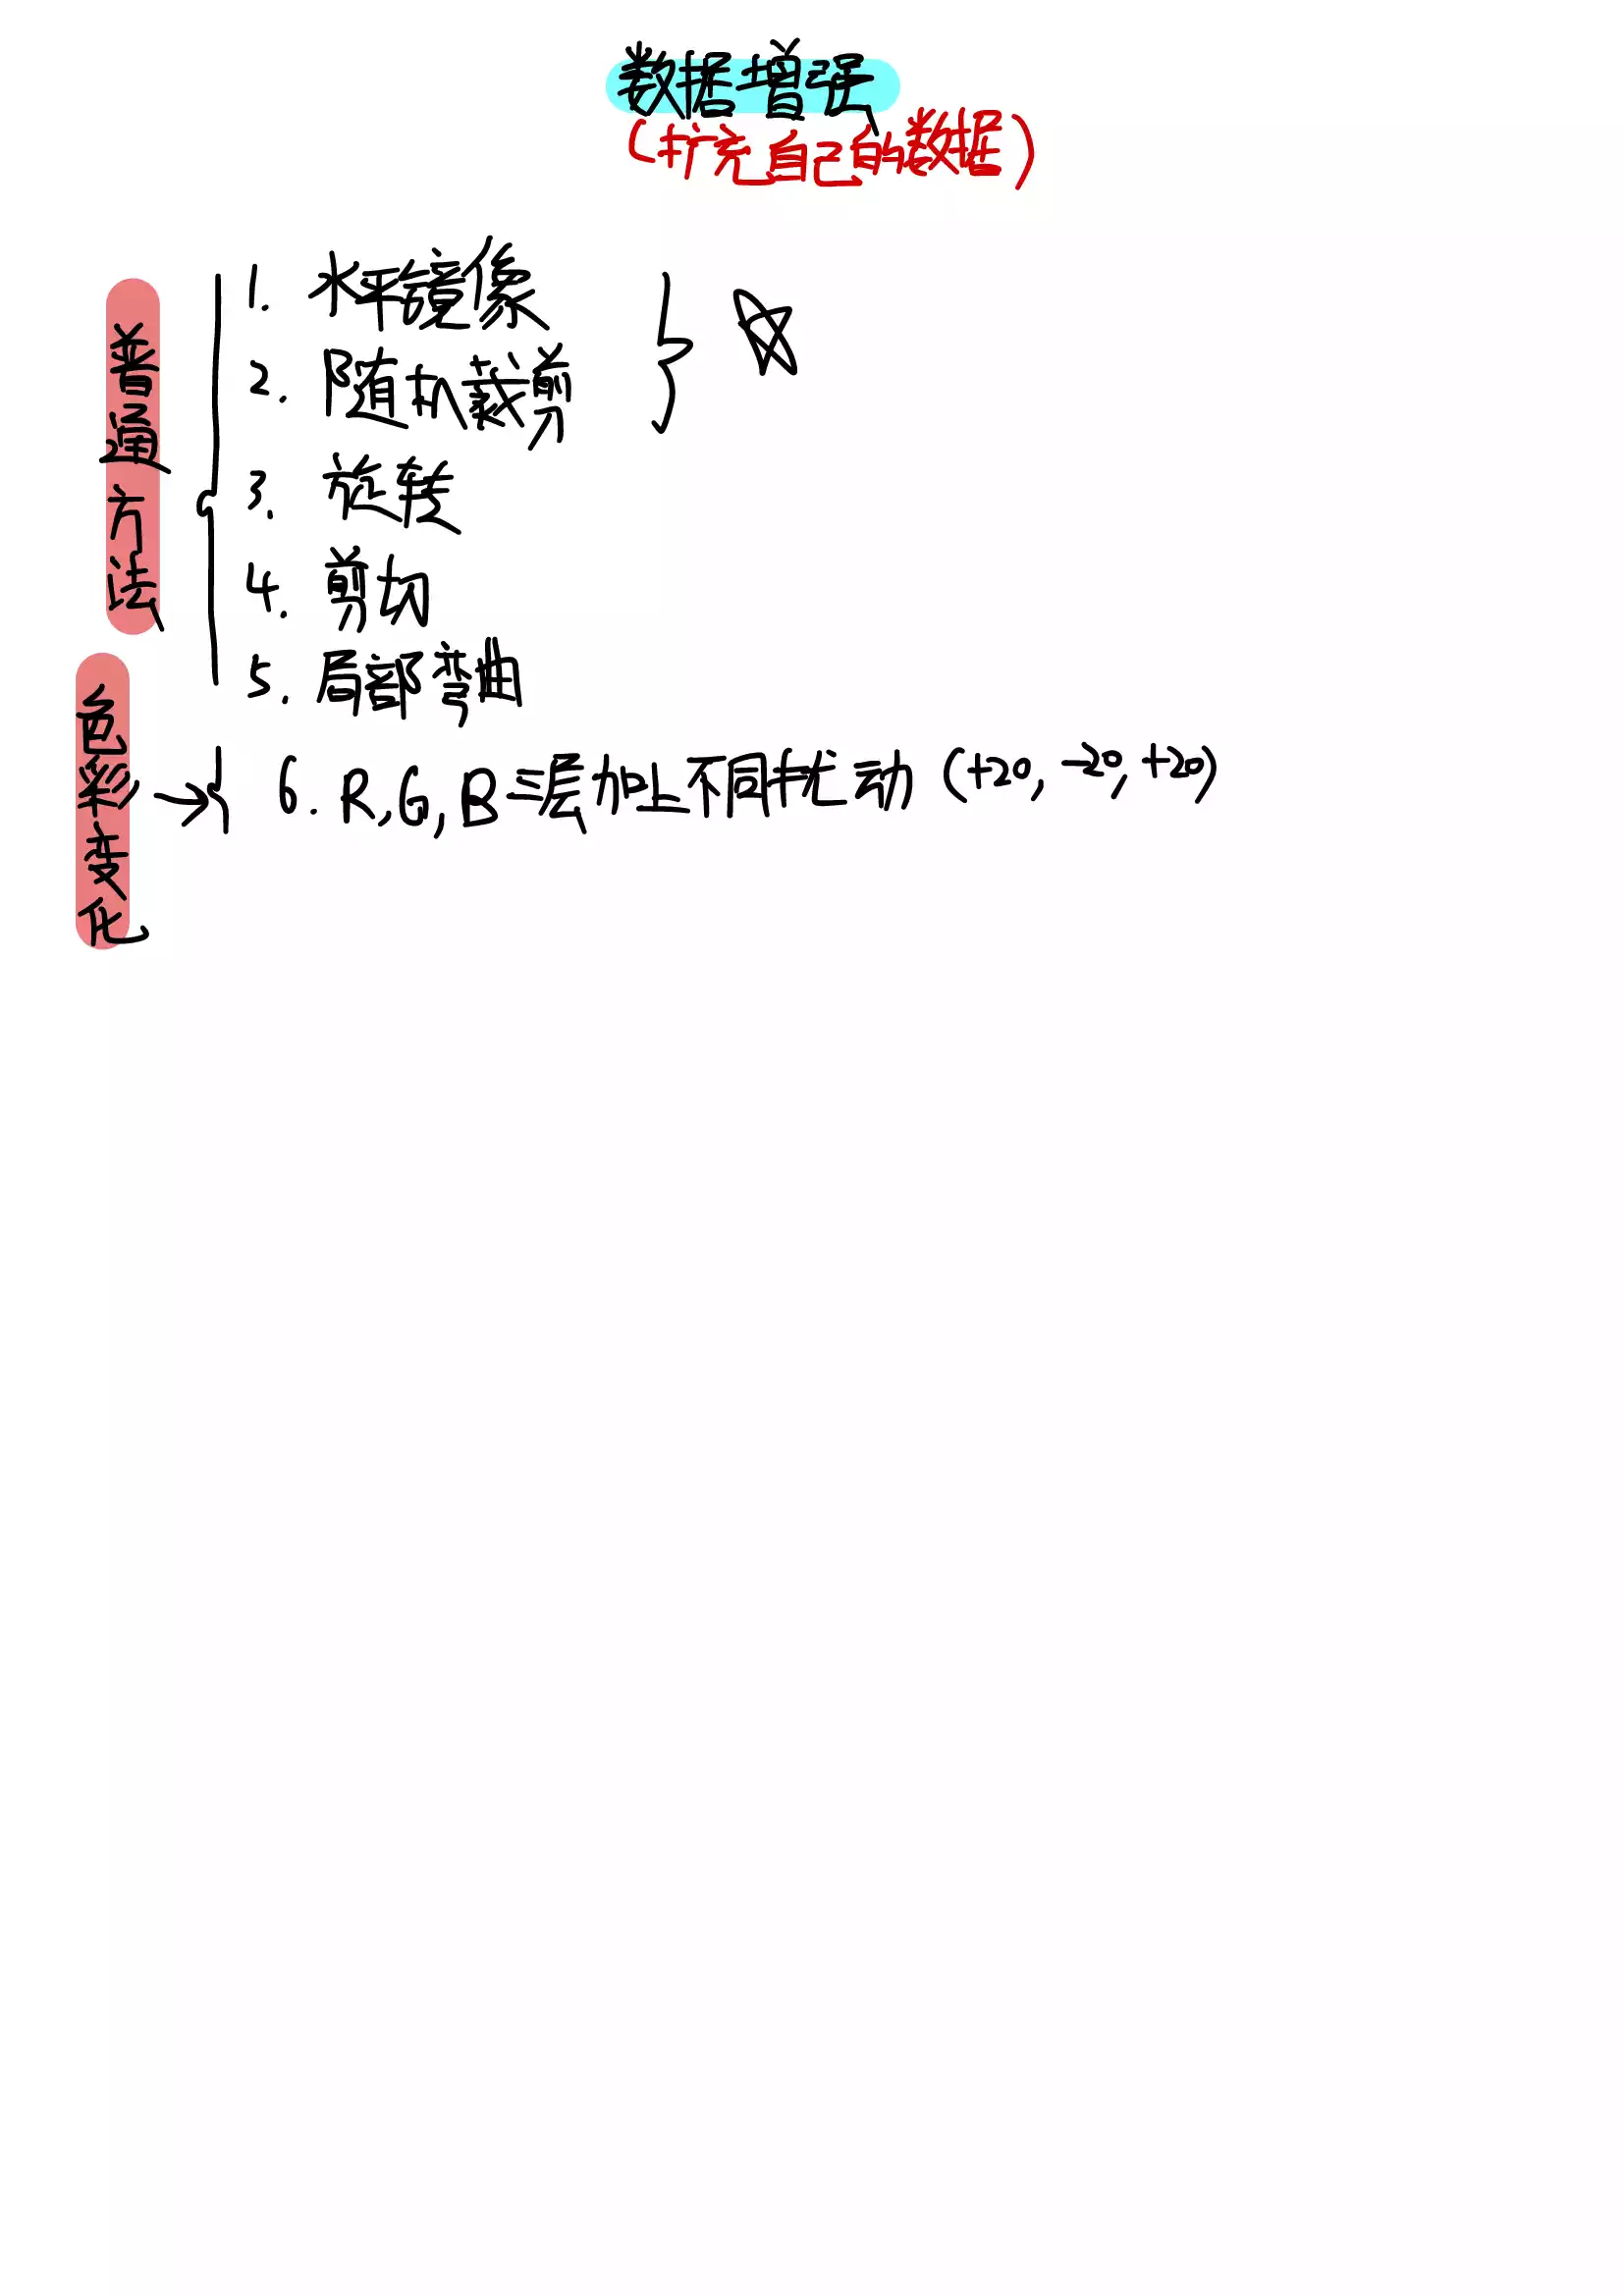 数据增强
(扩充自己的数据)
普通方法
1. 水平镜像
2. 随机裁剪
3. 旋转
4. 剪切
5. 局部弯曲
色彩变化
6. R,G,B三层加上不同扰动 (+20, -20, +20)